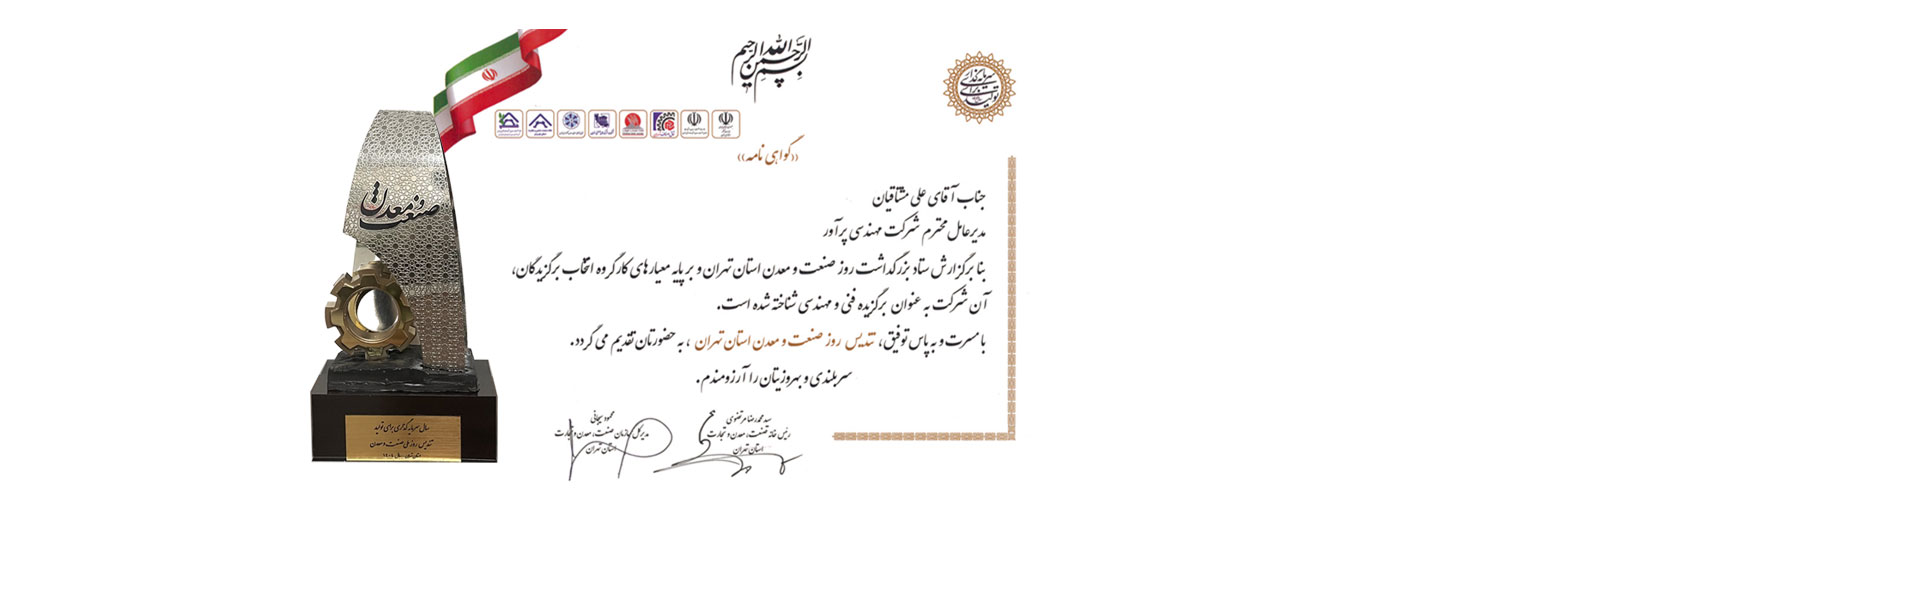 بسم الله الرحمن الرحیم
سرمایه‌گذاری
برای
تولید
((گواهی نامه))
جناب آقای علی مشتاقیان
مدیرعامل محترم شرکت مهندسی پرآور
بنا برگزارش ستاد بزرگداشت روز صنعت و معدن استان تهران و بر پایه معیارهای کارگروه انتخاب برگزیدگان،
آن شرکت به عنوان برگزیده فنی و مهندسی شناخته شده است.
با مسرت و به پاس توفیق، تندیس روز صنعت و معدن استان تهران ، به حضورتان تقدیم می گردد.
سربلندی و بهروزیتان را آرزومندم.
سید محمدرضا مرتضوی
رئیس خانه صنعت، معدن و تجارت
استان تهران
محمود سیجانی
مدیرکل سازمان صنعت، معدن و تجارت
استان تهران
صنعت و معدن
سال سرمایه گذاری برای تولید
تندیس روز ملی صنعت و معدن